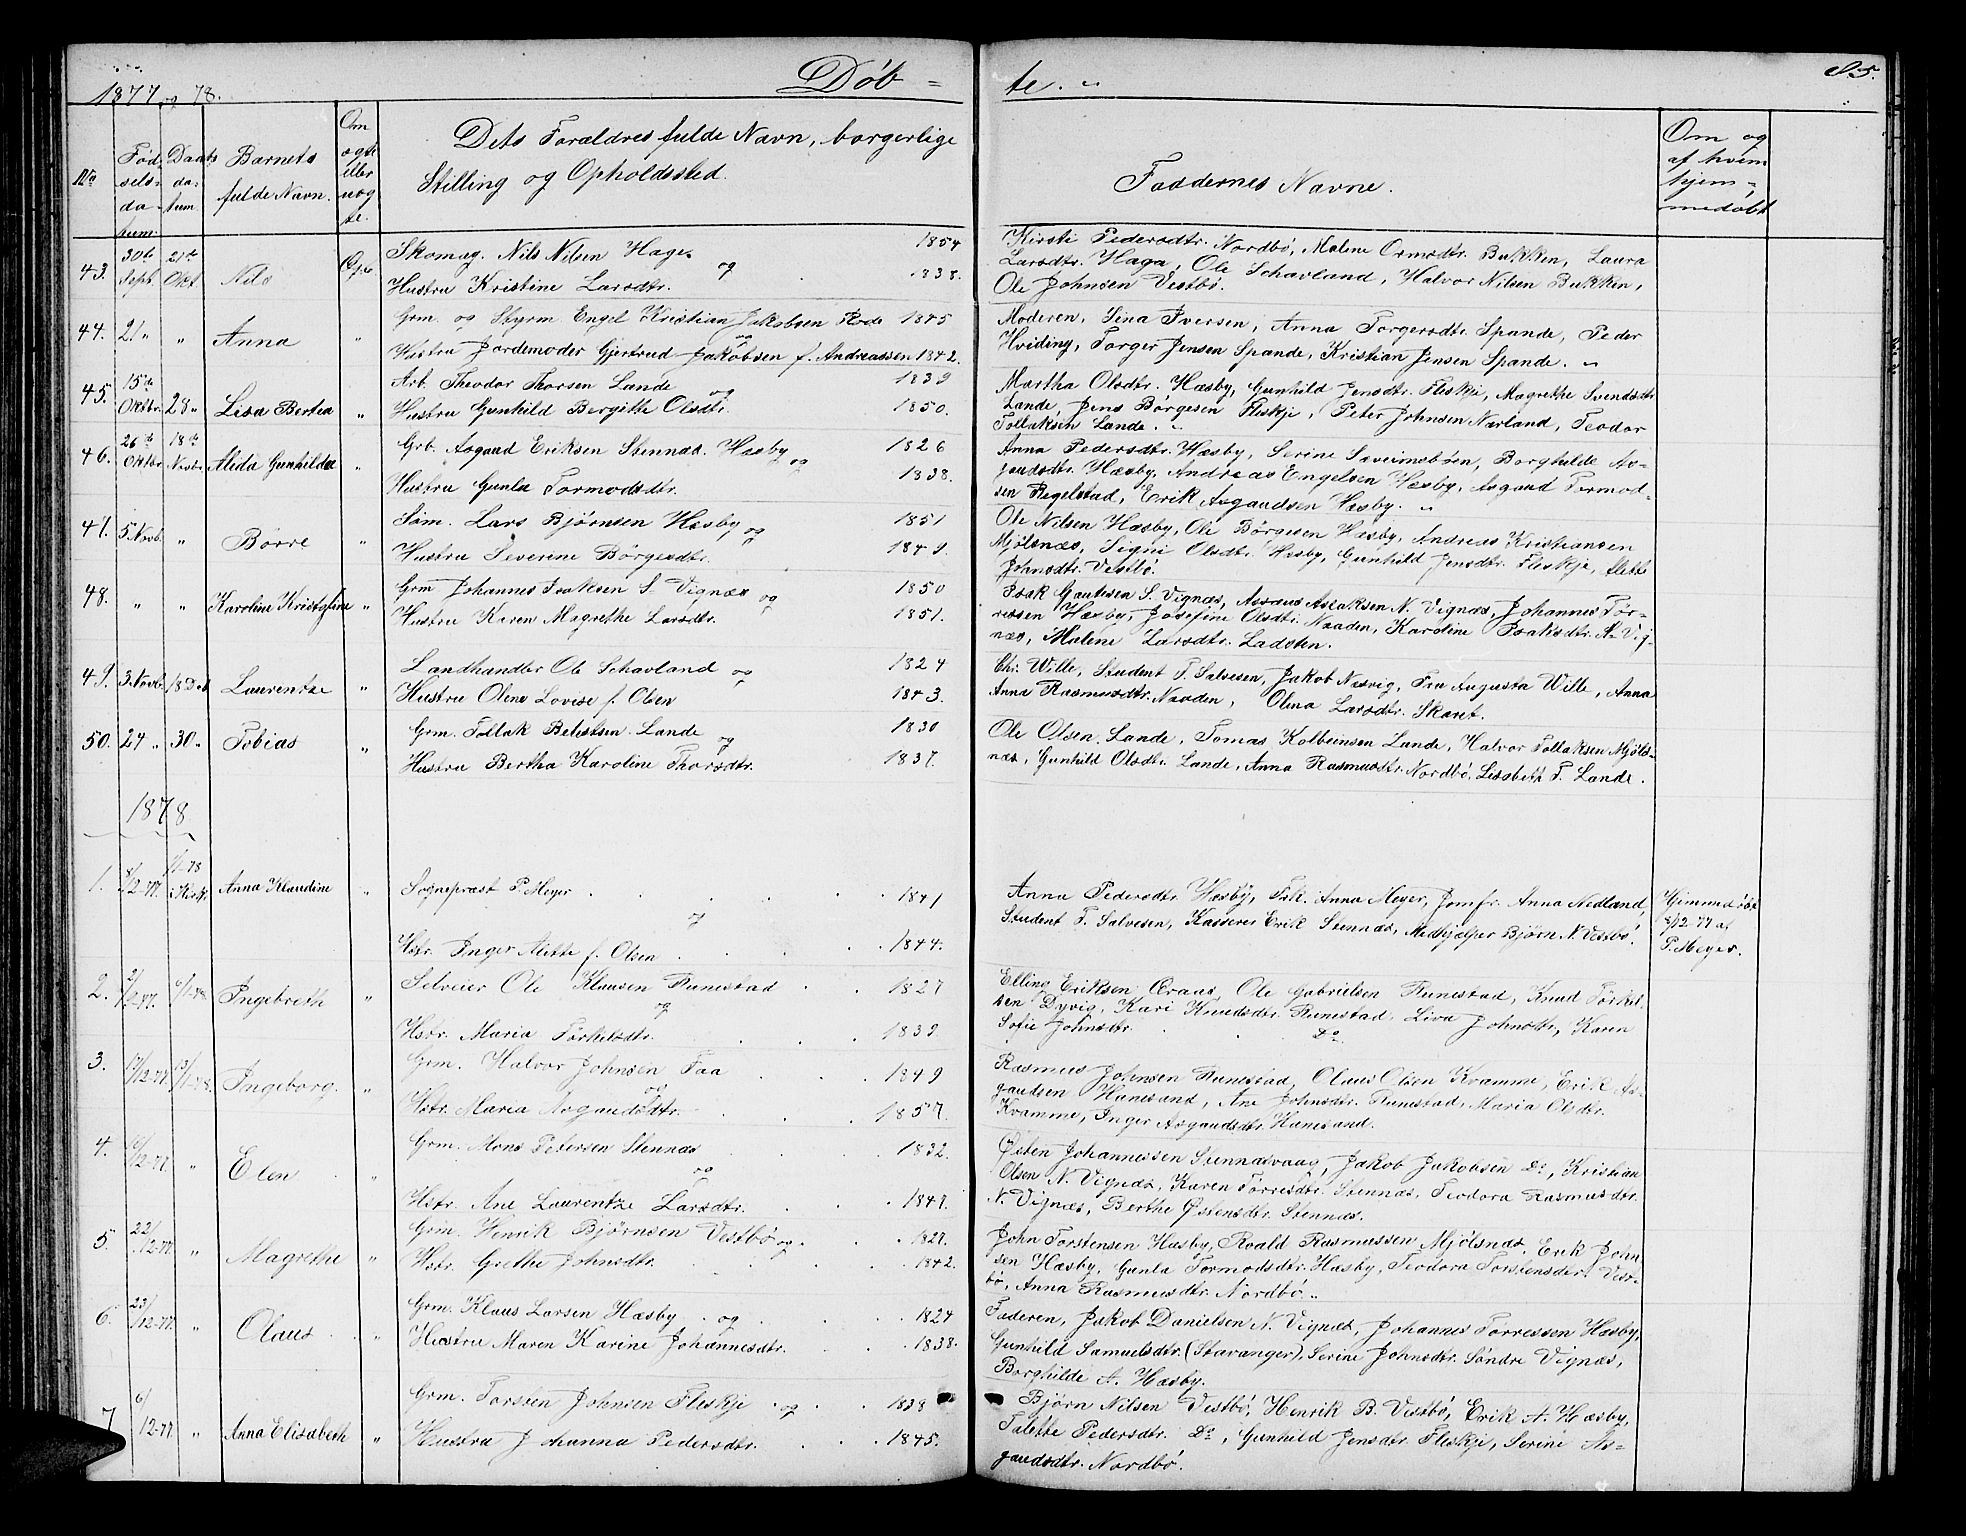 1877 og 78.
Døb =
te. "
85.
No
Fød-
sels-
da-
tum.
Daabs
da-
tum
Barnets
fulde Navn.
Om
ægte
eller
uæg
te.
Dets Forældres fulde Navn, borgerlige
Stilling og Opholdssted.
Faddernes Navne.
Om og
af hvem
hjem =
medøbt
43. 30te Septb. 21de Okt. Nils Egte
Skomag. Nils Nilsen Haga og 1854
Hustru Kristine Larsdtr. 1838.
Kirsti Pedersdtr. Nordbö, Malene Ormsdtr. Bukken, Laura
Larsdtr. Haga, Ole Schavland, Halvor Nilsen Bukken,
Ole Johnsen Vestbö.
44. 21 " " Anna "
Grm. og Styrm Engel Kristian Jakobsen Rode og 1845
Hustru Jordemoder Gjertrud Jakobsen f. Andreassen 1842.
Moderen, Sina Iversen, Anna Torgersdtr. Spande, Peder
Hviding, Torger Jensen Spande, Kristian Jensen Spande. "
45. 15de Oktbr. 28 " Lisa Bertea "
Arb. Theodor Thorsen Lande og 1839
Hustru Gunhild Bergithe Olsdtr. 1850.
Martha Olsdtr. Hæsby, Gunhild Jensdtr. Fleskje, Magrethe Svendsdtr
Lande, Jens Börgesen Fleskje, Peter Johnsen Nærland, Teodor
Tollaksen Lande. "
46. 26de Oktbr 18de Novbr Alida Gunhilda "
Grb. Asgaud Eriksen Stennæs. Hæsby og 1826
Hustru Gunla Tormodsdtr. 1838.
Anna Pedersdtr. Hæsby, Serine Sæveimsbören, Borghilde As-
gaudsdtr. Hæsby, Andreas Engelsen Hæsby, Asgaud Tormod-
sen Regelstad, Erik Asgaudsen Hæsby. "
47. 5 Novb. " Börre "
Söm. Lars Bjørnsen Hæsby og 1851
Hustru Severine Börgesdtr. 1849.
Ole Nilsen Hæsby, Ole Börgesen Hæsby, Andreas Kristiansen
Mjölsnæs, Signi Olsdtr. Hæsby, Gunhild Jensdtr. Fleskje, Alette
Johnsdtr. Vestbö.
48. " " Karoline Kristofine "
Grm Johannes Isaksen S. Vignæs og 1850
Hustru Karen Magrethe Larsdtr. 1851.
Isak Gautesen S. Vignæs, Aslaksen N. Vignæs, Johannes Tör-
ressen Hæsby, Josefine Olsdtr. Naaden, Karoline Isaksdtr. S. Vig-
næs, Malene Larsdtr. Ladsten.
49. 3 Novb. 18 Deb Laurentze "
Landhandler Ole Schavland og 1824
Hustru Olene Lovise f. Olsen 1843.
Chr. Wille, Student T. Salvesen, Jakob Næsvig, Fru Augusta Wille, Anna
Anna Rasmusdtr. Naaden, Olena Larsdtr. Skaret.
50. 24 " 30 " Tobias "
Grm. Tollak Belestsen Lande og 1830
Hustru Bertha Karoline Thorsdtr. 1837.
Ole Olsen Lande, Tomas Kolbeinsen Lande, Halvor Tollaksen Mjöls-
næs, Gunhild Olsdtr. Lande, Anna Rasmusdtr. Nordbö, Lisabeth T. Lande.
1878
1. 8/12-77. 1/1-78 i Kirke Anna Klaudine "
Sognepræst P. Meyer 1841
og
Hstr. Inger Alette f. Olsen 1844.
Anna Pedersdtr. Hæsby, Frk. Anna Meyer, Jomfr. Anna Nedland,
Student T. Salvesen, Kasserer Erik Stennæs, Medhjælper Bjørn N. Vestbö.
Hjemmedöbt
8/12-77 af
P. Meyer.
2. 6/1-78. Ingebreth "
Selveier Ole Klausen Funestad 1827
og
Hstr. Maria Törkelsdtr. 1839
Elling Eriksen Øraas, Ole Gabrielsen Funestad, Knud Törkel-
sen Dyvig, Kari Knudsdtr. Funestad, Liva Johnsdtr, Karen
Sofie Johnsdtr. Do.
3. 17/12-77. 13/1-78. Ingeborg. "
Grm. Halvor Johnsen Faa 1849
og
Hstr. Maria Asgaudsdtr. 1857.
Rasmus Johnsen Funestad, Olaus Olsen Kvamme, Erik As-
gaudsen Hanesand, Ane Johnsdtr. Funestad, Maria Olsdtr.
Kvamme, Inger Asgaudsdtr. Hanesand.
4. /12-77. " Elen "
Grm. Mons Petersen Stennæs 1832.
og
Hstr. Ane Laurentze Larsdtr. 1847.
Østen Johannessen Stennæsvaag, Jakob Jakobsen Do, Kristian
Olsen N. Vignæs, Karen Törresdtr. Stennæs, Teodora Rasmusdtr.
N. Vignæs, Berthe Østensdtr. Stennæs.
5. 22/12-77. " Magrethe "
Grm. Henrik Bjørnsen Vestbö og 1827.
Hstr. Grethe Johnsdtr. 1842.
John Torstensen Hæsby, Roald Rasmussen Mjölsnæs, Erik John-
sen Hæsby, Gunla Tormodsdtr. Hæsby, Teodora Torstensdtr. Vest-
bö, Anna Rasmusdtr Nordbö "
6. 23/12-77. " Olaus "
Grm. Klaus Larsen Hæsby og 1824
Hustru Maren Karine Johannesdtr. 1838.
Faderen, Jakob Danielsen N. Vignæs, Johannes Törressen Hæsby,
Gunhild Samuelsdtr. (Stavanger), Serine Johnsdtr. Söndre Vignæs,
Borghilde A. Hæsby.
7 6/12-77. " Anna Elisabeth "
Grm. Torsten Johnsen Fleskje og 1838
Hustru Johanna Pedersdtr. 1845.
Bjørn Nilsen Vestbö, Henrik B. Vestbö, Erik A. Hæsby,
Talette Pedersdtr. Do, Gunhild Jensdtr. Fleskje, Serine As-
gaudsdtr. Nordbö.